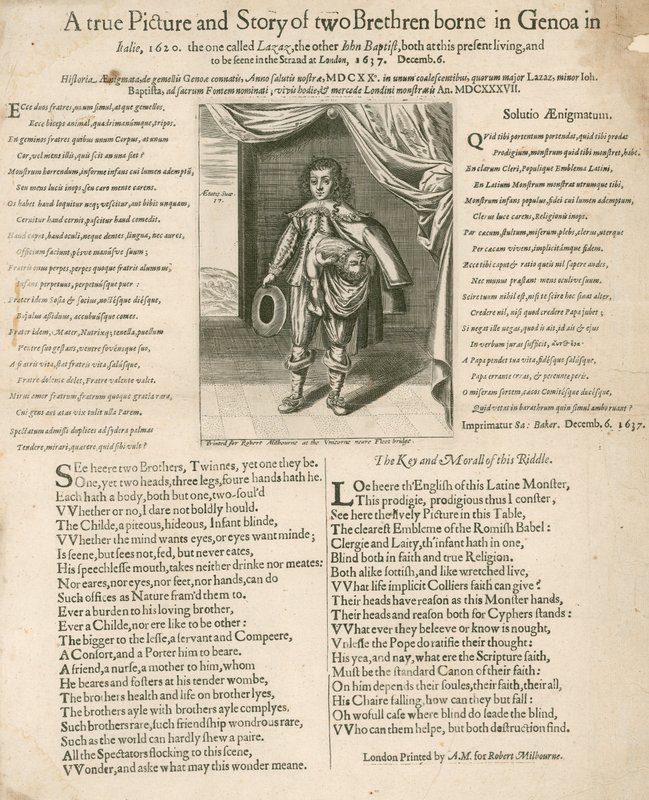 A true Picture and Story of two Brethren borne in Genoa in
Italie, 1620. the one called Lazaz, the other Iohn Baptist, both at this present living, and
to be seene in the Strand at London, 1637. Decemb. 6.
Historia Ænigmata, de gemellis Genoæ connatis, Anno salutis nostræ, MDCXXº. in unum coalescentibus, quorum major Lazaz, minor Ioh.
Baptista, ad sacrum Fontem nominati, vivis hodie, & mercede Londini monstratis An. MDCXXXVII.
ECce duos fratres, unum simul, atque gemellos,
Ecce biceps animal, quadrimanúmque, tripos.
En geminos fratres quibus unum Corpus, at unum
Cor, vel mens illis, quis scit an una siet?
Monstrum horrendum, informe infans cui lumen ademptũ,
Seu mens lucis inops, seu caro mente carens.
Os habet haud loquitur neq; vescitur, aut bibit unquam,
Cernitur haud cernit, pascitur haud comedit.
Haud capta, haud oculi, neque dentes, lingua, nec aures,
Officium faciunt, pésve manúsve suum;
Fratri onus perpes, perpes quoque fratris alumnus,
Infans perpetuus, perpetuúsque puer:
Frater idem Sosia & socius, noctésque diésque,
Bajulus assiduus, accubuúsque comes.
Frater idem, Mater, Nutrixq; tenella, puellum
Ventre suo gestans, ventre fovénsque suo,
A fratris vita, stat fratris vita salúsque,
Fratre dolente dolet, Fratre valente valet.
Mirus amor fratrum, fratrum quoque gratia rara,
Cui gens aut ætas vix tulit ulla Parem,
Spectatum admissi duplices ad sydera palmas
Tendere, mirari, quærere, quid sibi vult?
Ætatis Suæ
17.
Printed for Robert Milbourne at the Vnicorne neare Fleet bridge.
Solutio Ænigmatum.
QVid tibi portentum portendat, quid tibi prodat
Prodigium, monstrum quid tibi monstret, habe.
En clarum Cleri, Populique Emblema Latini,
En Latium Monstrum monstrat utrumque tibi,
Monstrum infans populus, fidei cui lumen ademptum,
Clerus luce carens, Religionis inops.
Par cæcum, stultum, miserum, plebs, clerus, uterque
Per cæcam vivens, implicitámque fidem.
Ecce tibi caput & ratio queis nil sapere andes,
Nec manus præstant mens oculive suum.
Scire tuum nihil est, nisi te scire hoc sinat alter,
Credere nil, nisi quod credere Papa jubet;
Si negat ille negas, quod is ait, id ais & ejus
In verbum juras sufficit,
A Papa pendet tua vita, fidésque salúsque,
Papa errante erras, & pereunte peris.
O miseram sortem, cæcos Comitésque ducésque,
Quid vetat in barathrum quin simul ambo ruant?
Imprimatur Sa: Baker. Decemb. 6. 1637.
SEe heere two Brothers, Twinnes, yet one they be.
One, yet two heads, three legs, foure hands hath he.
Each hath a body, both but one, two-soul'd
VVhether or no, I dare not boldly hould.
The Childe, a piteous, hideous, Infant blinde,
VVhether the mind wants eyes, or eyes want minde;
Is seene, but sees not, fed, but never eates,
His speechlesse mouth, takes neither drinke nor meates:
Nor eares, nor eyes, nor feet, nor hands, can do
Such offices as Nature fram'd them to.
Ever a burden to his loving brother,
Ever a Childe, nor ere like to be other:
The bigger to the lesse, a servant and Compeere,
A Consort, and a Porter him to beare.
A friend, a nurse, a mother to him, whom
He beares and fosters at his tender wombe,
The brothers health and life on brother lyes,
The brothers ayle with brothers ayle complyes.
Such brothers rare, such friendship wondrous rare,
Such as the world can hardly shew a paire.
All the Spectators flocking to this scene,
VVonder, and aske what may this wonder meane.
The Key and Morall of this Riddle.
LOe heere th'English of this Latine Monster,
This prodigie, prodigious thus I conster,
See here the lively Picture in this Table,
The clearest Embleme of the Romish Babel:
Clergie and Laity, th'infant hath in one,
Blind both in faith and true Religion.
Both alike sottish, and like wretched live,
VVhat life implicit Colliers faith can give?
Their heads have reason as this Monster hands,
Their heads and reason both for Cyphers stands:
VVhat ever they beleeve or know is nought,
Vnlesse the Pope do ratifie their thought:
His yea, and nay, what ere the Scripture saith,
Must be the standard Canon of their faith:
On him depends their soules, their faith, their all,
His Chaire falling, how can they but fall:
Oh wofull case where blind do leade the blind,
VVho can them helpe, but both destruction find.
London Printed by A.M. for Robert Milbourne.